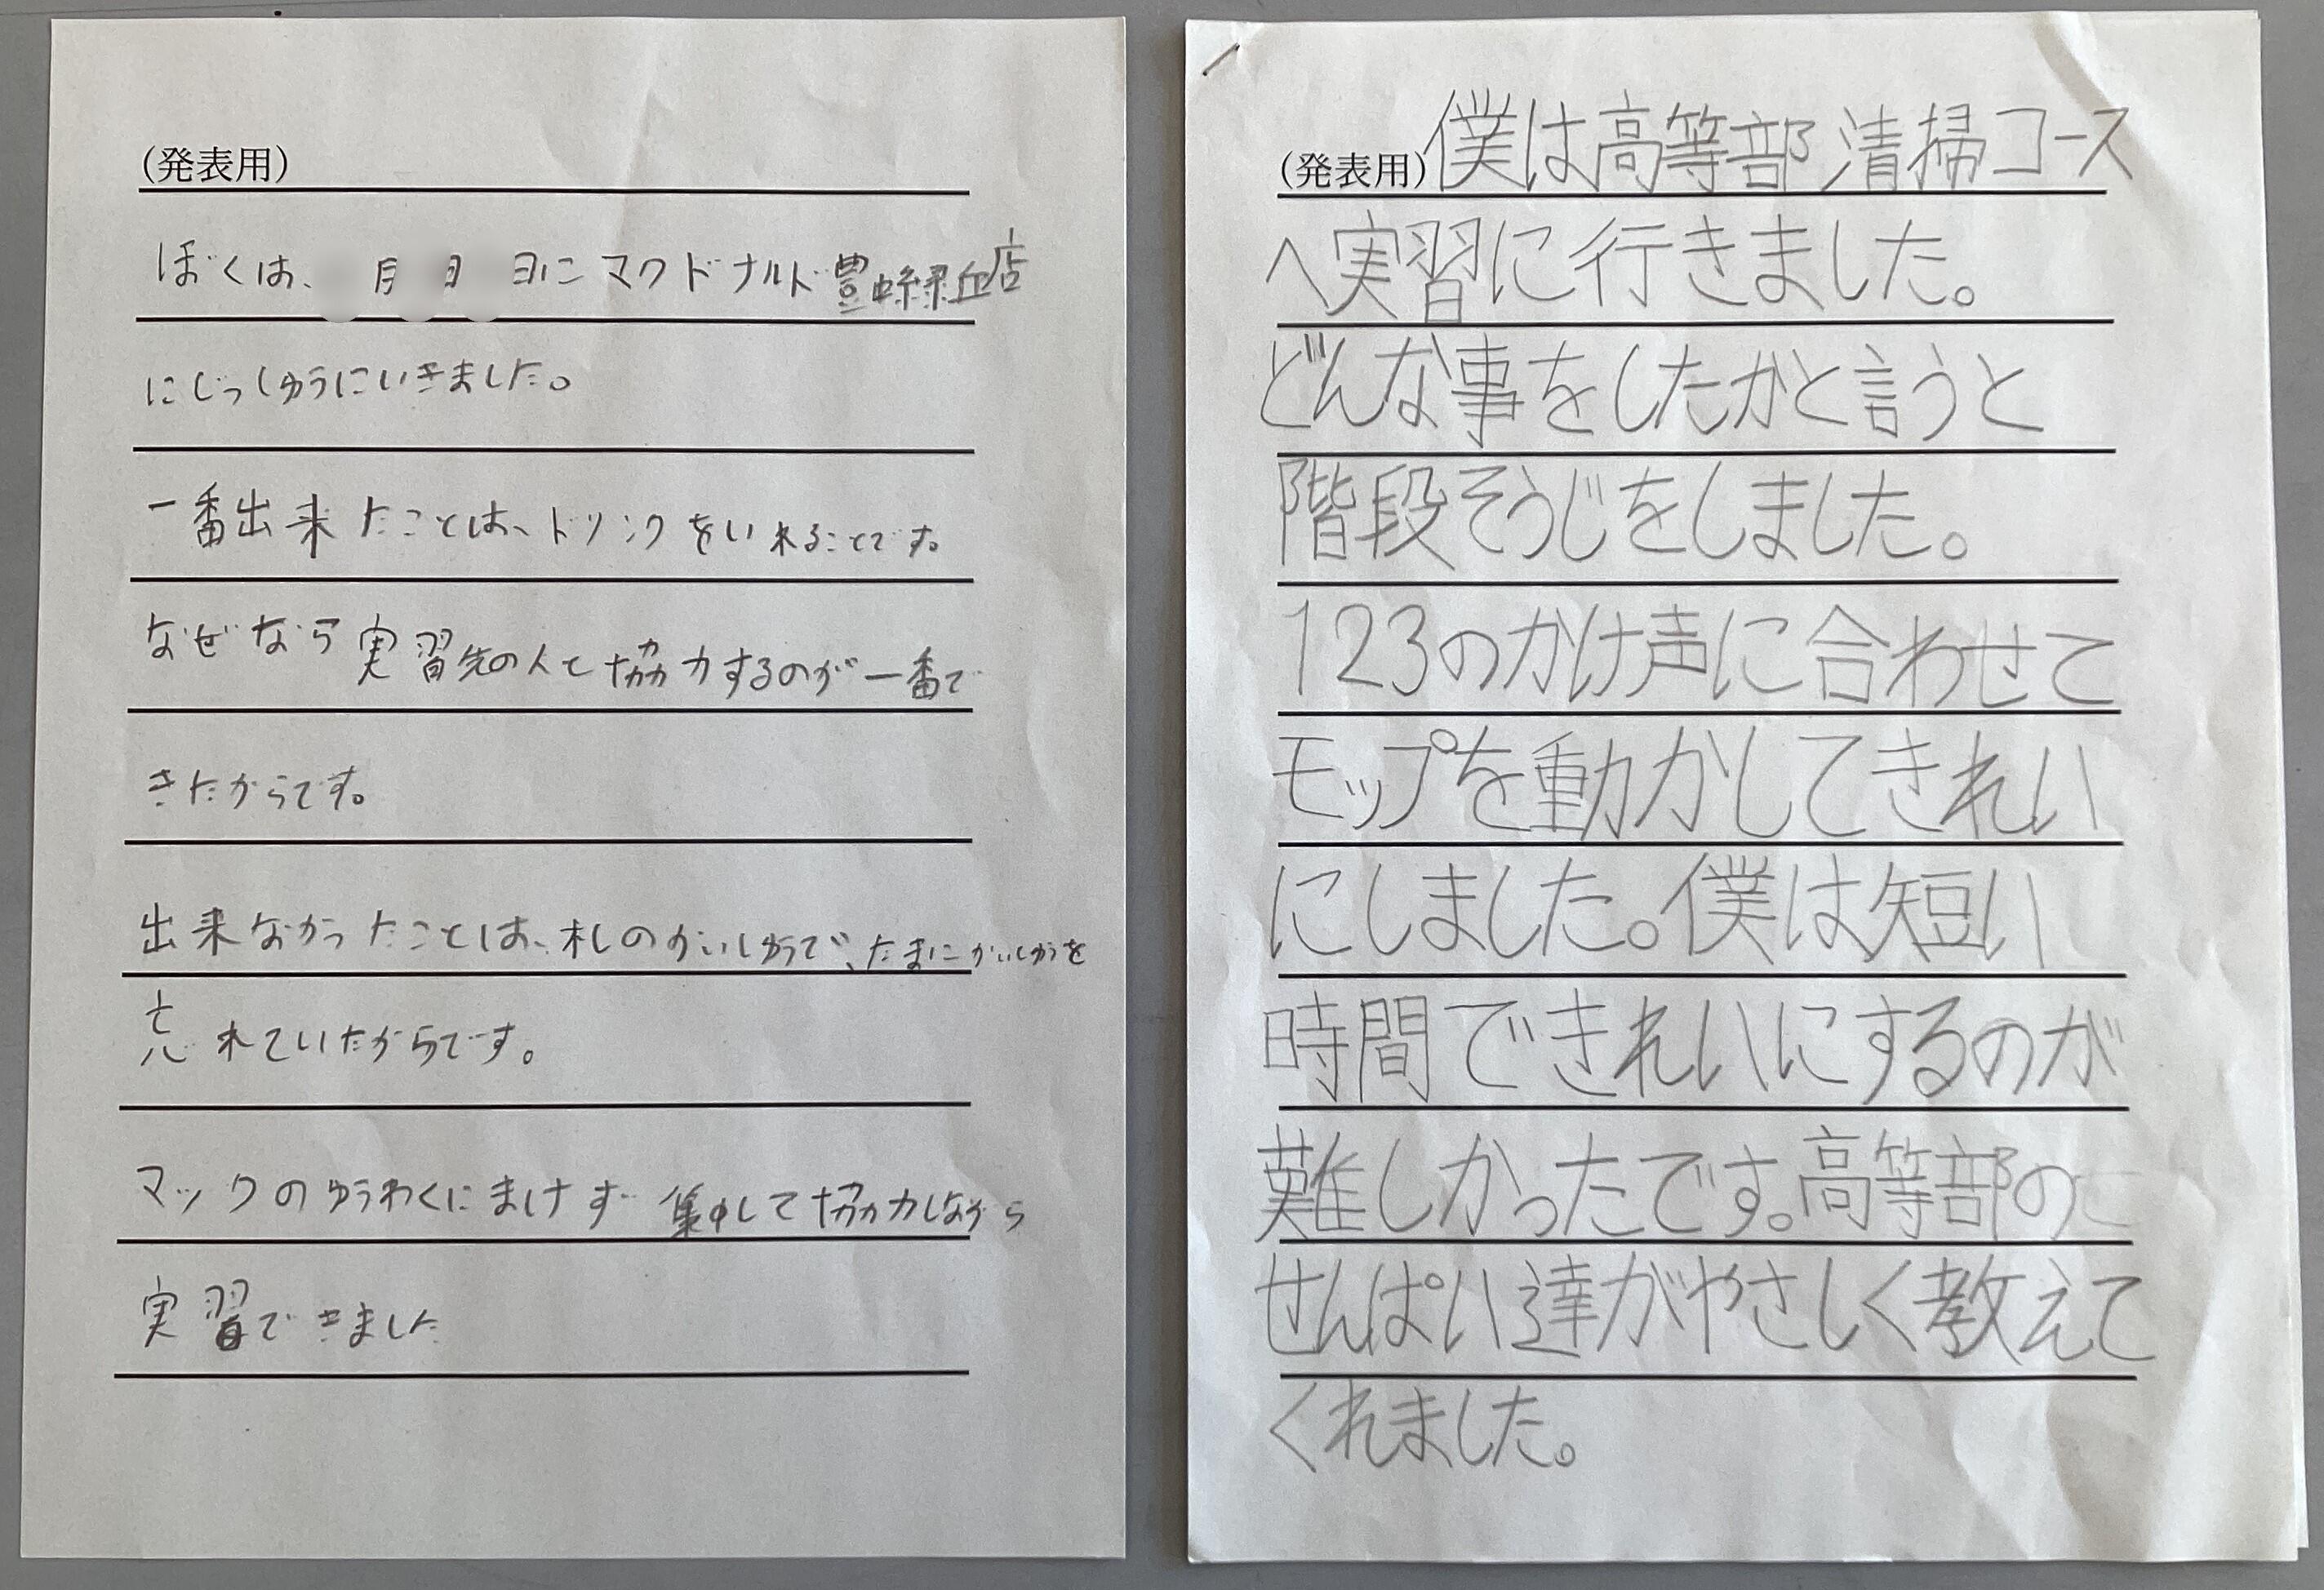 (発表用)
ぼくは、月日日にマクドナルド豊中緑丘店
にじっしゅうにいきました。
一番出来たことは、ドリンクをいれることです。
なぜなら実習先の人と協力するのが一番で
きたからです。
出来なかったことは、札のかいしゅうで、たまにかいしゅうを
忘れていたからです。
マックのゆうわくにまけず集中して協力しながら
実習できました
(発表用)僕は高等部清掃コース
へ実習に行きました。
どんな事をしたかと言うと
階段そうじをしました。
123のかけ声に合わせて
モップを動かしてきれい
にしました。僕は短い
時間できれいにするのが
難しかったです。高等部の
せんぱい達がやさしく教えて
くれました。